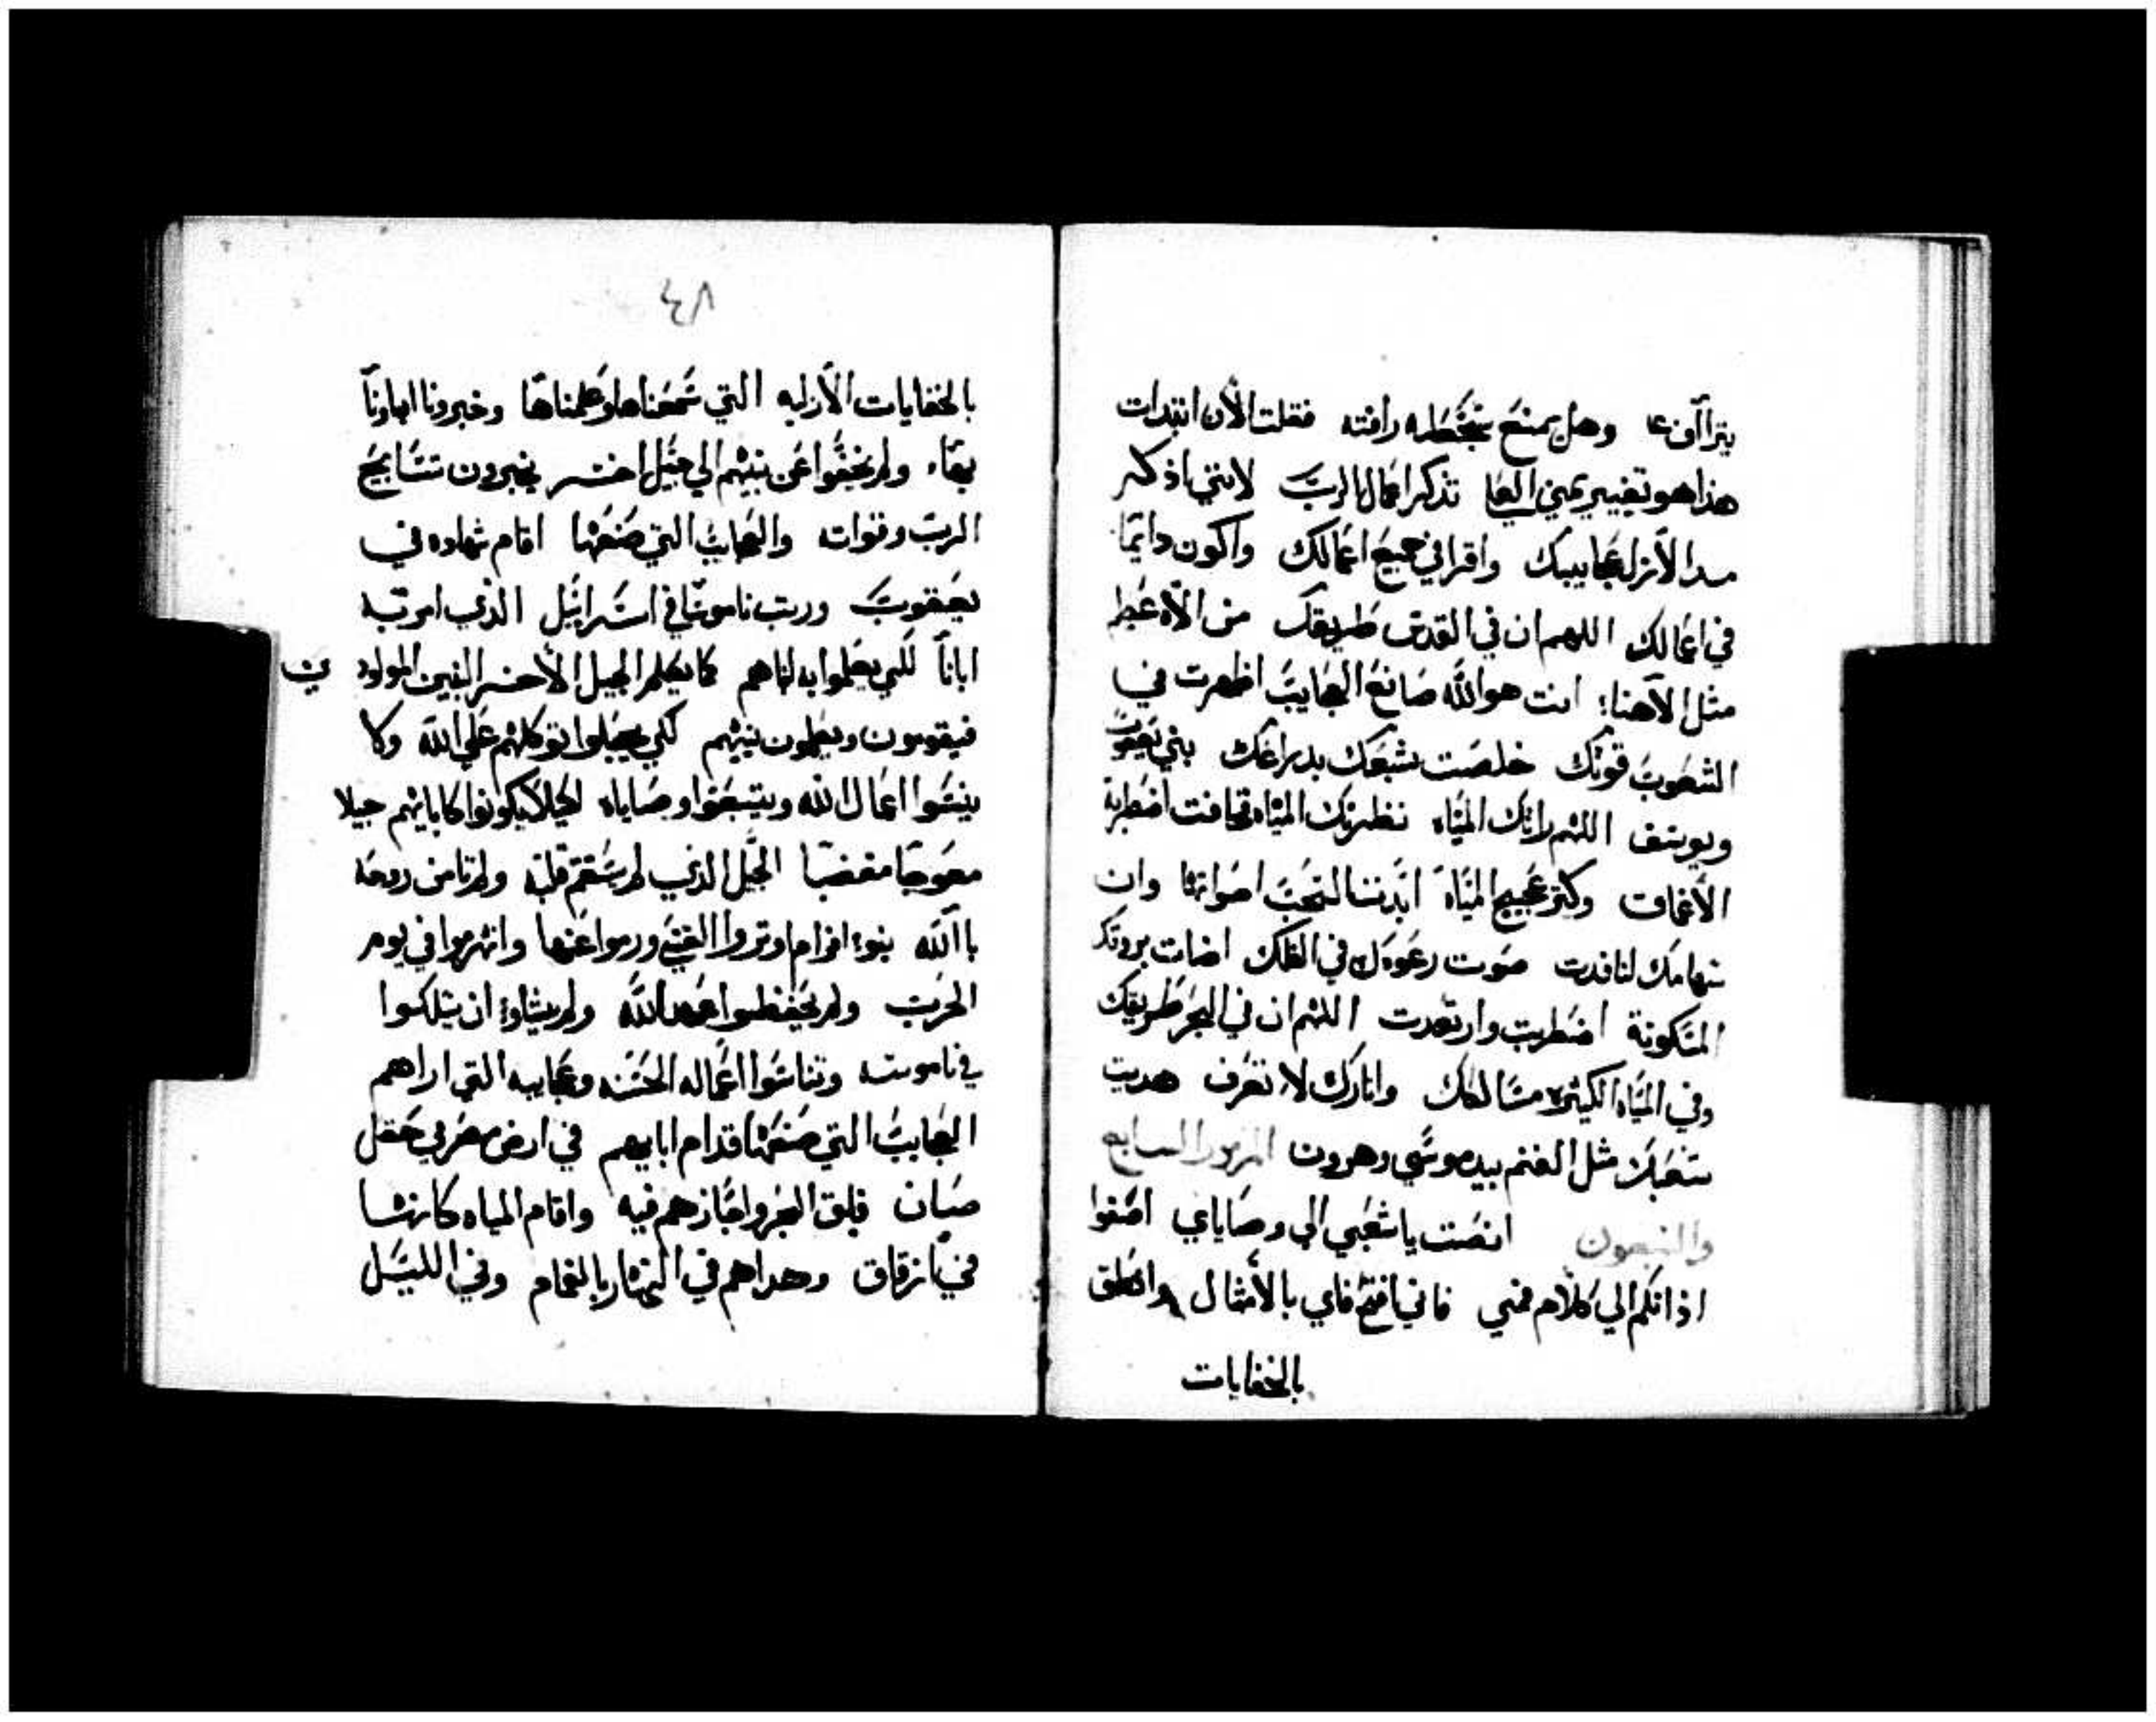 يتراأف علا وهل يمنع بسخطه رافته فقلت الأن ابتدات
هذا هو تغيير يمين العلي تذكرت اعمال الرب لانني اذكر
مند الأزل عجايبك واقرا في جميع اعمالك واكون دايمًا
في اعمالك اللهم ان في القدس طريقك من الاه عظيم
مثل الاهنا؛ انت هو الله صانع العجايب اظهرت في
الشعوب قوتك خلصت شعبك بدراعك بني يعقوب
ويوسف اللهم راتك المياه نظرتك المياه فخافت اضطربة
الأعماق وكثر عجيج المياه ابدت السحب اصواتها وان
سهامك لنافدت صوت رعودك في الفلك اضات بروقك
المسكونة اضطربت وارتعدت اللهم ان في البحر طريقك
وفي المياه الكثيره مسالكك واتارك لا تعرف هديت
شعبك مثل الغنم بيد موسي وهرون المزمور السابع
والسبعون انصت يا شعبي الي وصاياي اصغوا
اذانكم الي كلام فمي فاني افتح فاي بالأمثال وانطق
بالخفايات
٤٨
بالخفايات الأزليه التي سمعناها وعلمناها وخبرونا اباونا
بها، ولم تخفوا عن بنيهم الي جيل اخر يخبرون تسابيح
الرب وقواته والعجايب التي صنعها اقام شهاده في
يعقوب ورتب ناموسًا في اسراييل الذي امر به
اباناً لكي يعلموا به ابناهم كما يعلم الجيل الأخر البنين المولودين
فيقومون ويعلمون بنيهم لكي يجعلوا توكلهم علي الله ولا
ينسوا اعمال الله ويتبعوا وصاياه لكيلا يكونوا كابايهم جيلا
معوجًا مغضبًا الجيل الذي لم يستقم قلبه ولم تامن روحه
باالله بنوا افرام اوتروا القسي ورموا عنها وانهزموا في يوم
الحرب ولم يحفظوا عهد الله ولم يشاوا ان يسلكوا
في ناموسه وتناسوا اعماله الحسنه وعجايبه التي اراهم
العجايب التي صنعها قدام ابايهم في ارض مصر في حقل
صاان فلق البحر واجازهم فيه واقام المياه كانها
في ازقاق وهداهم في النهار بالغمام وفي الليل